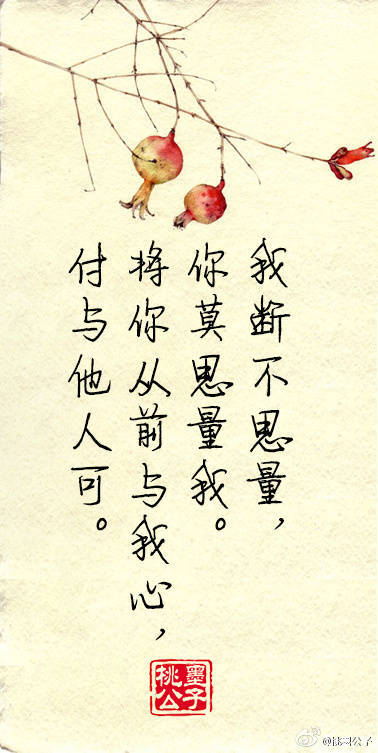 我断不思量，
你莫思量我。
将你从前与我心，
付与他人可。
桃墨
公子
@桃墨公子